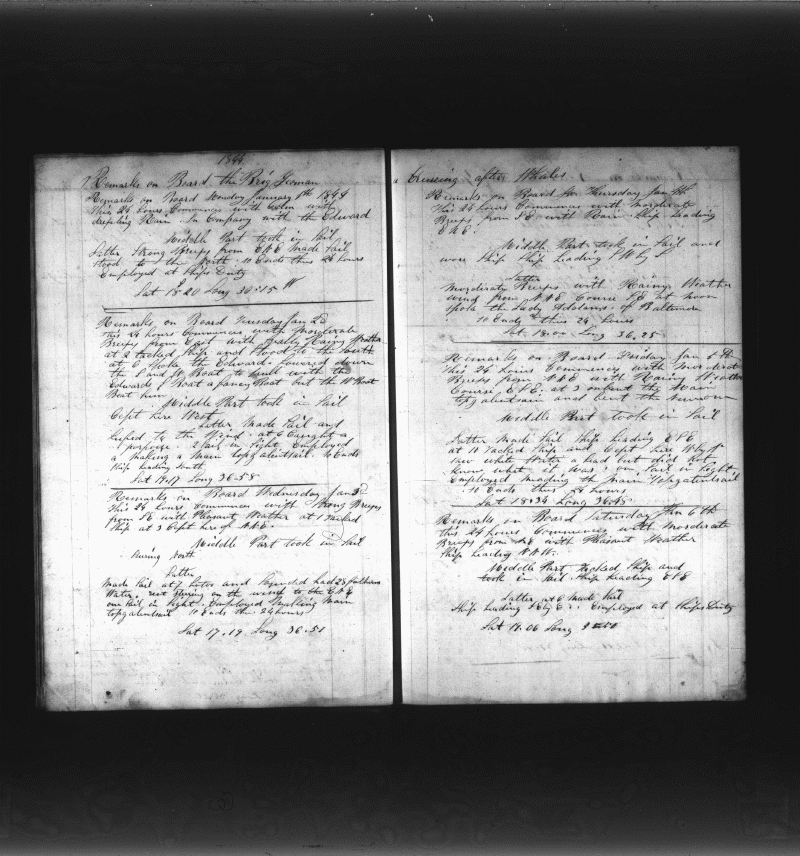 1844
Remarks on Board the Brig Yeoman
Remarks on Board Monday January 1th 1844
This 24 hours Commences with Calm with
drisling Rain in Company with the Edward
Middle Part took in Sail
Latter Strong Breeps from ENE Made Sail
stood to the North So Ends this 24 hours
Employed at Ships Duty
Lat 18°20 Long 36:15 W
Remarks on Board Tuesday Jan 2d
This 24 hours Commences with Moderate
Breeps from East with Rainy Weather
at 2 tacked Ship and stood to the South
at 6 spoke the Edward. Lowered down
the and W Boat to with the
Edwards Boat a fancy Boat but the W Boat
Beat him
Middle Part took in Sail
Kept here West
Latter Made Sail and
to the Wind. at 6 Caught a
porpoise 2 Sail in Sight Employed
a making a Main topgalentsail. So Ends
Ship heading South
Lat 17.17 Long 36-58
Remarks on Board Wednesday Jan 3d
This 24 hours Commences with Strong Breeps
from NE with Pleasant Weather at 1 tacked
Ship at 3 Kept here of NNE.
Middle Part took in Sail
North
Latter
Made Sail at 7 and Sounded had 28 fathoms
Water. on the wind to the ENE
one Sail in Sight Employed Making Main
topgalentsail So Ends this 24 hours
Lat 17.19 Long 36.51
Cruising after Whales
Remarks on Board on Thursday Jan 4th
This 24 hours Commences with Moderate
Breeps from SE with Rain Ship heading
ENE.
Middle Part took in Sail and
wore Ship Ship heading S W by S
Latter
Moderate Breeps with Rainy Weather
wind from NNE Course SE at noon
Spoke the Lady Addams of Baltimore
So Ends this 24 hours
Lat 18.00 Long 36.25
Remarks on Board Friday Jan 5th
This 24 hours Commences with Moderate
Breeps from NNE with Rainy Weather
Course ESE. at 3 unbent the Main
topgalentsail and bent the new one
Middle Part took in Sail
Latter Made Sail Ship heading ENE
at 11 Tacked Ship and Kept here W by N
saw white Water a head but did Not
know what it was: one Sail in Sight
Employed Mending the Main Topgalentsail
So Ends this 24 hours
Lat 18.34 Long
Remarks on Board Saturday Jan 6th
this 24 hours Commences with Moderate
Breeps from NE with Pleasant Weather
Ship heading NNW.
Middle Part Tacked Ship and
took in Sail. Ship heading ENE
Latter at 6 Made Sail
Ship heading E by E. Employed at Ships Duty
Lat 18.06 Long